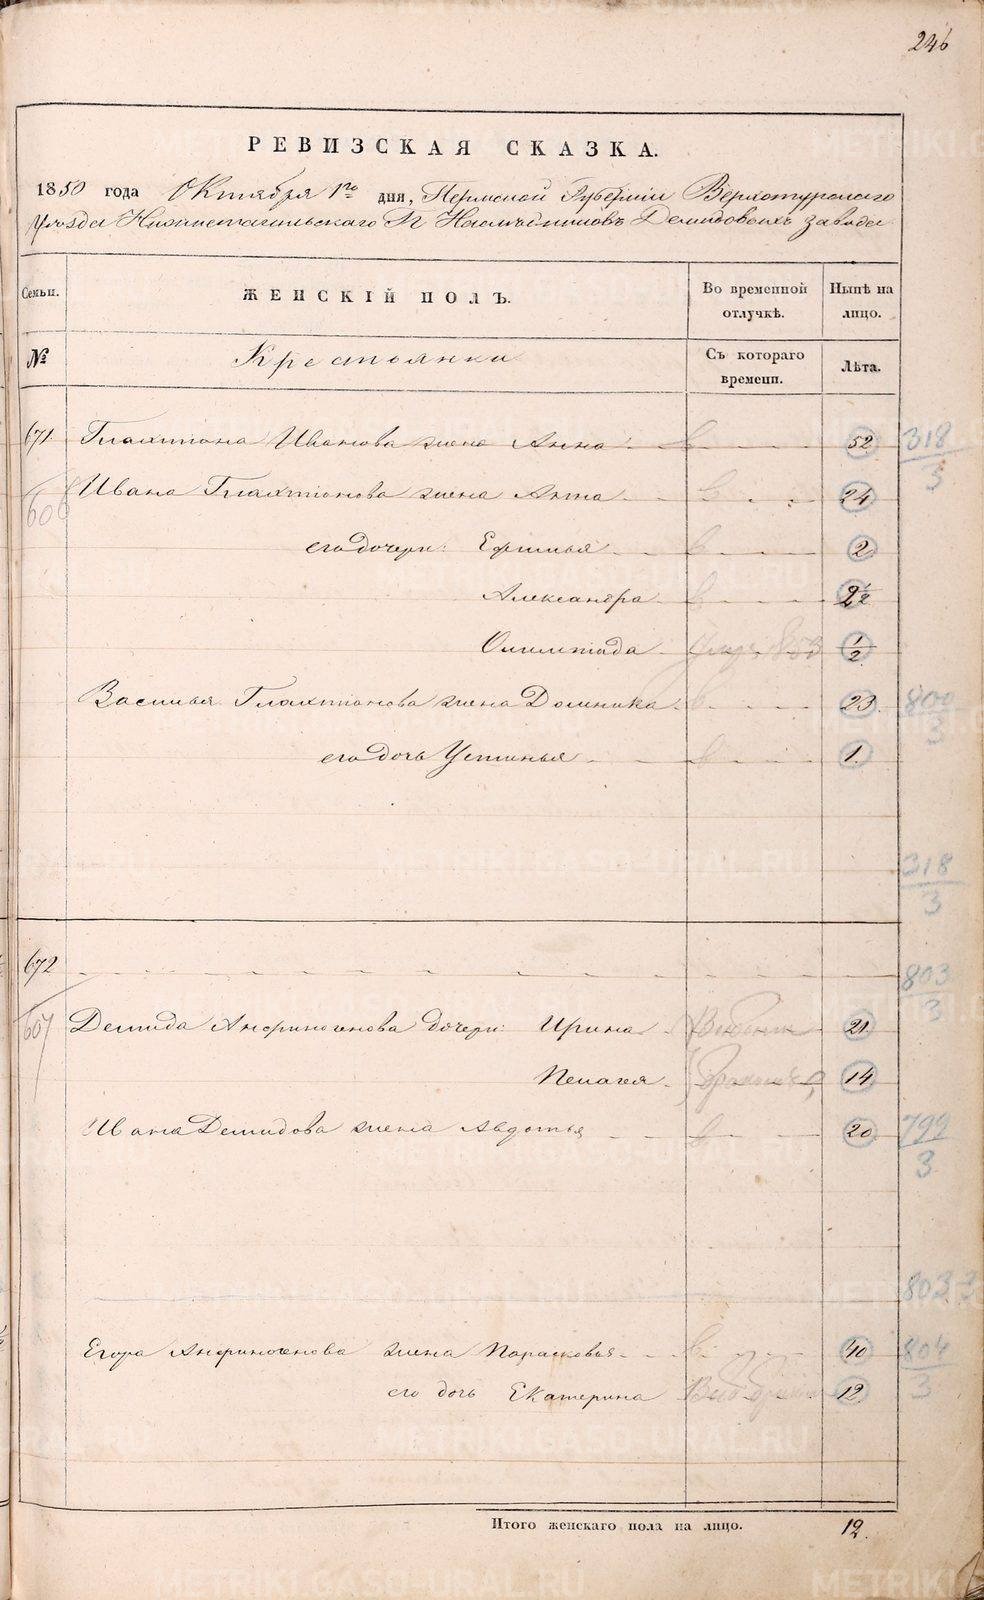 246
РЕВИЗСКАЯ СКАЗКА.
1850 года Октября 1го дня, Пермской Губернии Верхотурскаго
Уезда Нижнетагильскаго Гг Наследниковъ Демидовыхъ завода
Семьи. ЖЕНСКІЙ ПОЛЪ. Во временной отлучкѣ. Нынѣ на лицо.
№ Крестьянки Съ котораго времени. Лѣта.
671. Иванова жена Анна 52 318/3
Ивана жена Анна 24
606
его дочери: Ефимья 2
Александра 2½
Олимпіада 853 ½
Василья жена Домника 23 800/3
его дочь Устинья 1.
318/3
672
803/3
607 Демида Анфиногенова дочери: Ирина 21
Пелагея 14
Ивана Демидова жена Авдотья 20 799/3
803 3
Егора Анфиногенова жена Парасковья 40 804/3
его дочь Екатерина 12
Итого женскаго пола на лицо. 12.
METRIKI.GASO-URAL.RU